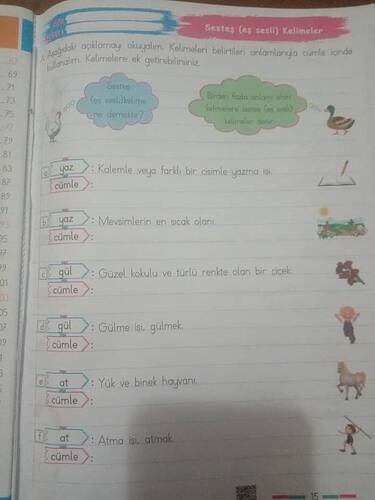 Sesteş (eş sesli) Kelimeler
Aşağıdaki açıklamayı okuyalım. Kelimeleri belirtilen anlamlarıyla cümle içinde
kullanalım. Kelimelere ek getirebilirsiniz.
Sesteş
(eş sesli) kelime
ne demektir?
Birden fazla anlamı olan
kelimelere sesteş (eş sesli)
kelimeler denir.
a yaz : Kalemle veya farklı bir cisimle yazma işi.
cümle :
b yaz : Mevsimlerin en sıcak olanı.
cümle :
c gül : Güzel kokulu ve türlü renkte olan bir çiçek.
cümle :
d gül : Gülme işi, gülmek.
cümle :
e at : Yük ve binek hayvanı.
cümle :
f at : Atma işi, atmak.
cümle :
15
69
71
73
75
79
81
83
87
89
91
95
97
99
01
05
07
09